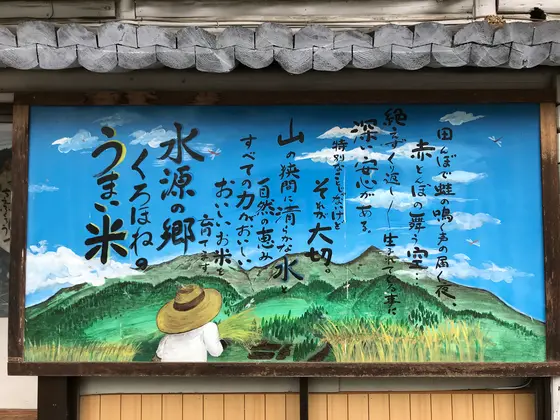 田んぼで蛙の鳴く声の届く夜、
赤とんぼの舞う空…
絶えず繰り返し 生きてる事に
深い安心がある。
特別なことがないけど
それが大切。
山の狭間に清らかな水と
自然の恵み
すべての力がおいしい
おいしいお米を
育てます
水源の郷
くろはね。
うまい米